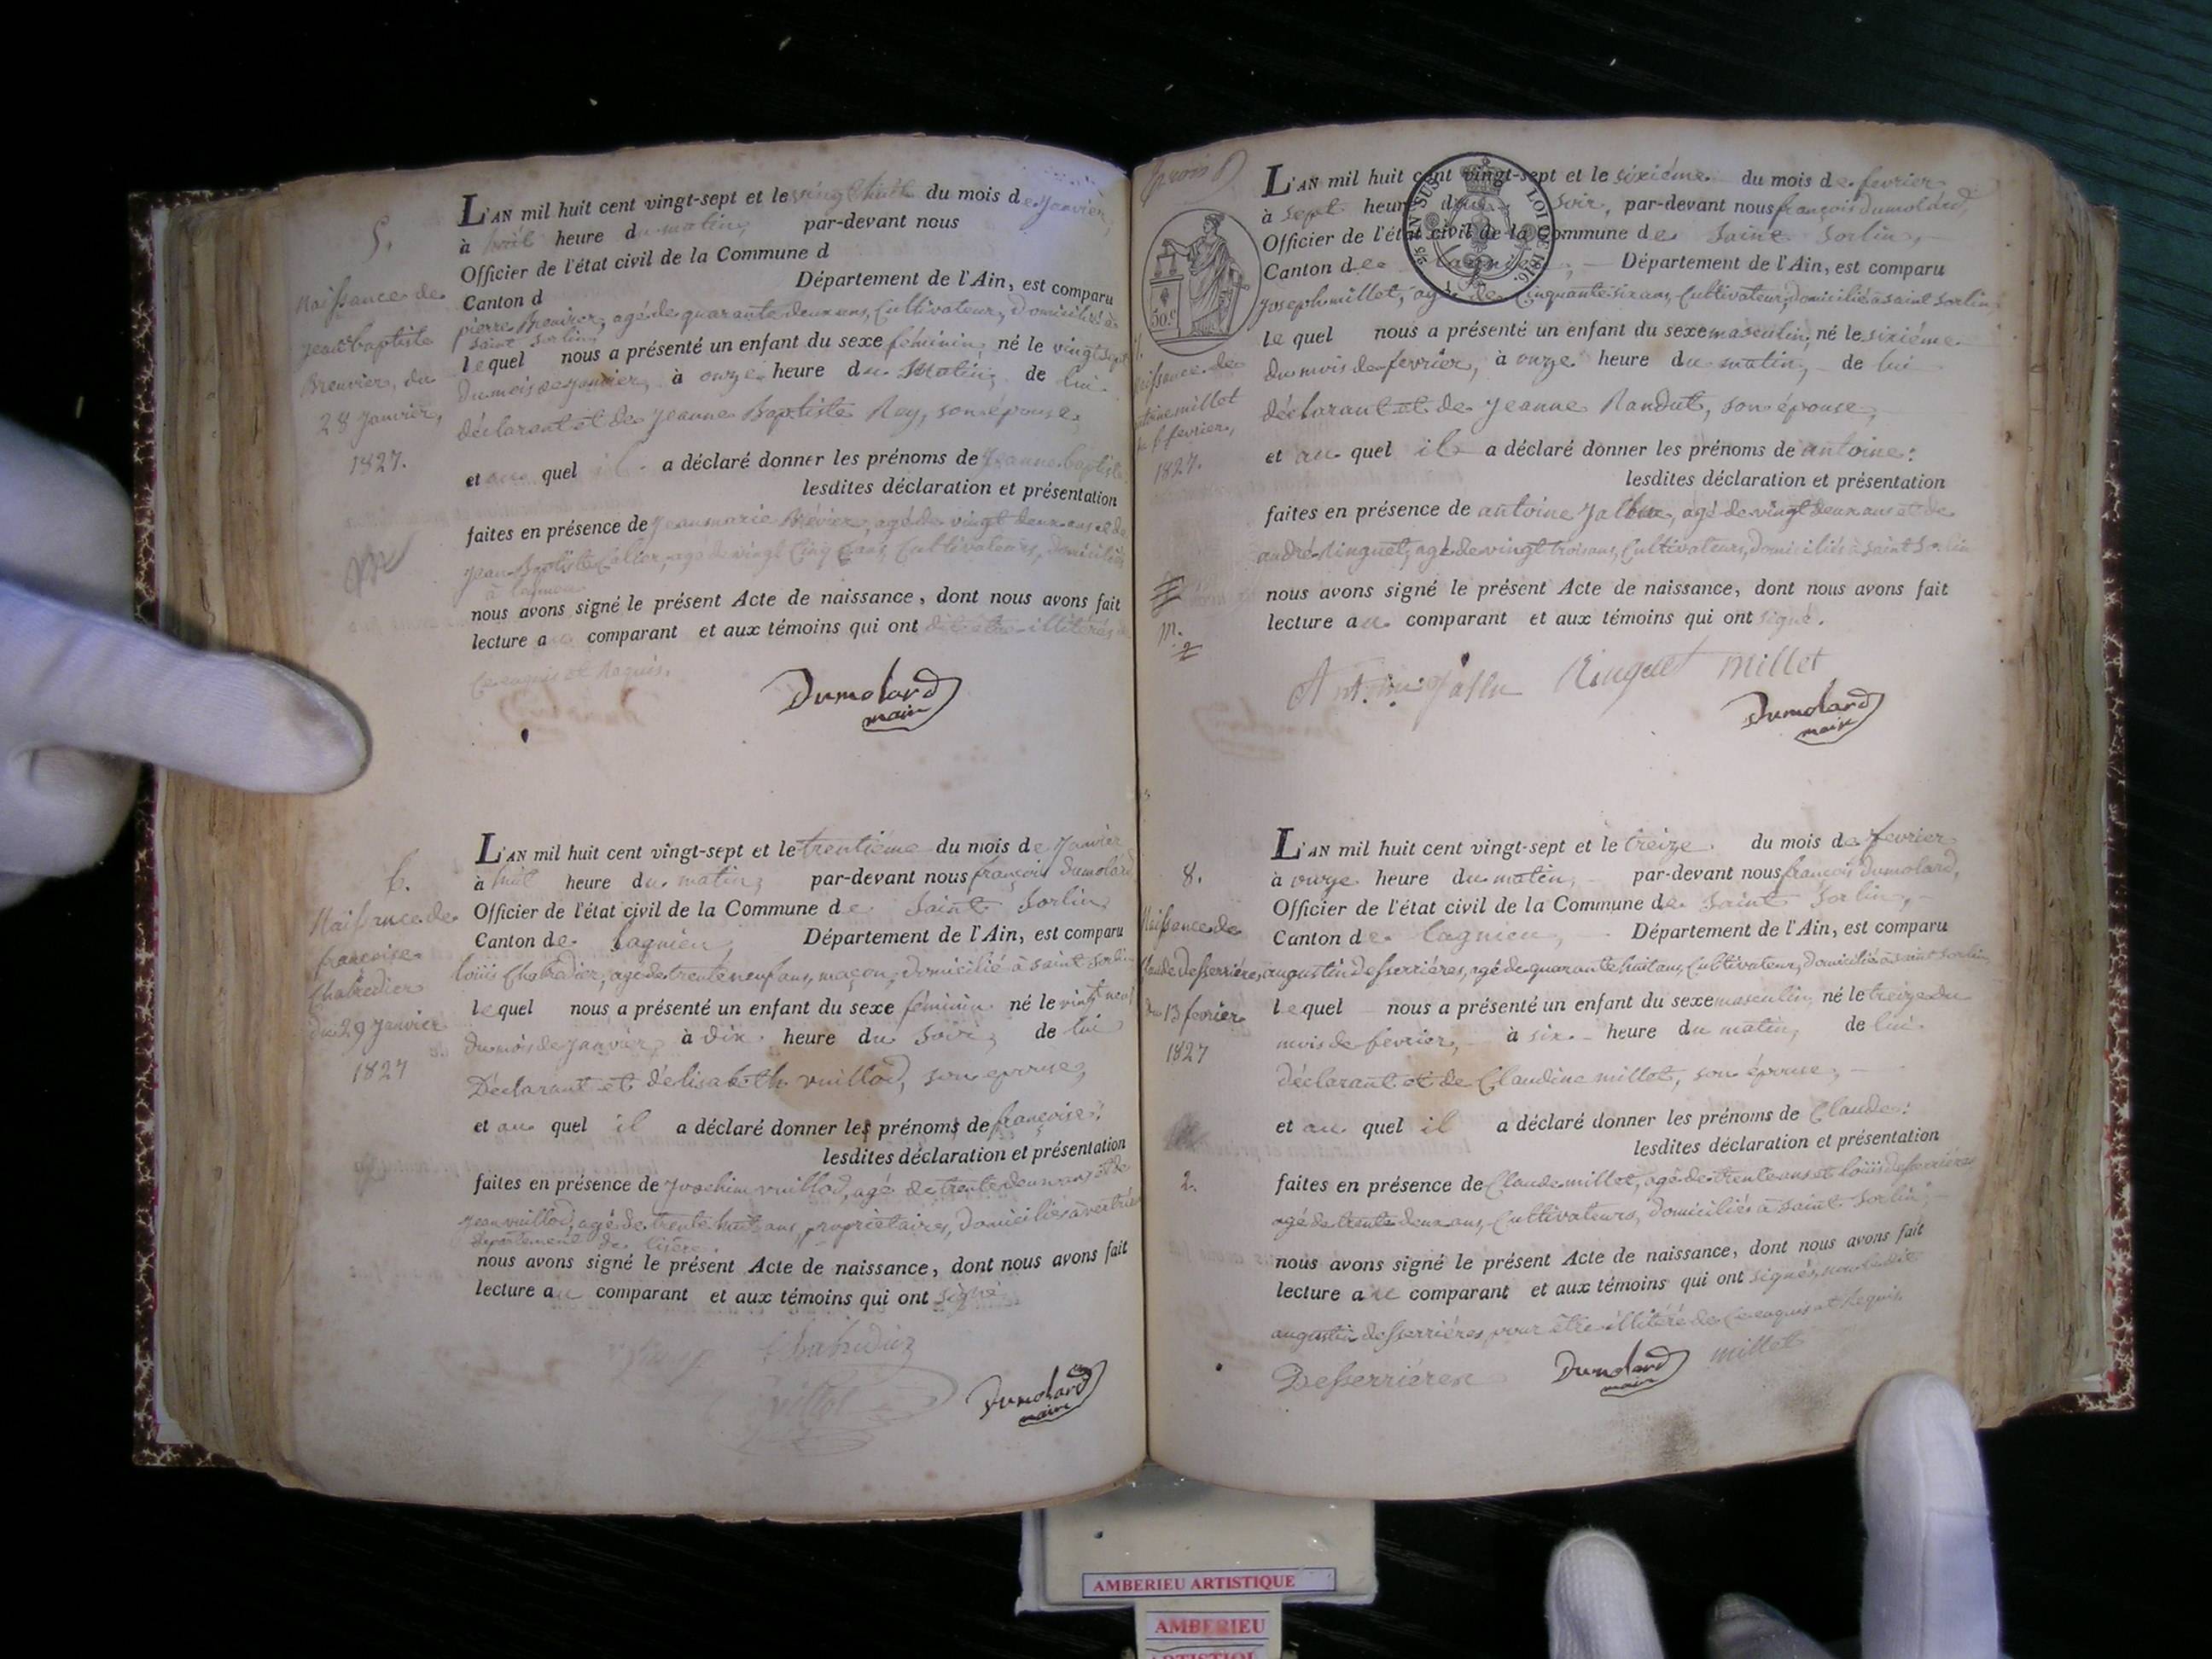 5.
Naissance de
jeane baptiste
Brenvier, du
28 janvier,
1827.
L'AN mil huit cent vingt-sept et le vingt huit du mois de janvier,
à huit heure du matin, par-devant nous
Officier de l'état civil de la Commune d
Canton d Département de l'Ain, est comparu
pierre Brenvier, agé de quarante deux ans, Cultivateur, domicilié à
saint sorlin,
lequel nous a présenté un enfant du sexe féminin, né le vingt sept
du mois de janvier, à onze heure du Matin, de lui
déclarant et de jeanne Baptiste Roy, son épouse,
et au quel il a déclaré donner les prénoms de jeanne baptiste
lesdites déclaration et présentation
faites en présence de jean marie agé de vingt deux ans et de
jean Baptiste agé de vingt Cinq ans, Cultivateurs, domiciliés
à lagnieu
nous avons signé le présent Acte de naissance, dont nous avons fait
lecture au comparant et aux témoins qui ont dit être illitérés de
ce enquis et Requis.
Dumolard
maire
6.
Naissance de
françoise
Chabredier
du 29 janvier
1827
L'AN mil huit cent vingt-sept et le trentième du mois de janvier
à huit heure du matin, par-devant nous françois Dumolard,
Officier de l'état civil de la Commune de Saint Sorlin,
Canton de lagnieu, Département de l'Ain, est comparu
louis Chabredier, agé de trente neuf ans, maçon, domicilié à saint sorlin
lequel nous a présenté un enfant du sexe féminin né le vingt neuf
du mois de janvier, à dix heure du soir, de lui
Déclarant et délisabeth vuillod, son epouse,
et au quel il a déclaré donner les prénoms de françoise:
lesdites déclaration et présentation
faites en présence de joachim vuillod, agé de trente deux ans et de
jean vuillod, agé de trente huit ans, propriétaires, domiciliés à vertrieu
département de lisère.
nous avons signé le présent Acte de naissance, dont nous avons fait
lecture au comparant et aux témoins qui ont signé
Chabredier
Dumolard
maire
trois
SUS LOI 1816
50 c
7.
Naissance de
antoine millet
du 6 fevrier,
1827.
L'AN mil huit cent vingt-sept et le sixième du mois de fevrier
à sept heure du soir, par-devant nous françois dumolard
Officier de l'état civil de la Commune de Saint Sorlin,
Canton de Lagnieu, Département de l'Ain, est comparu
joseph millet, agé de Cinquante six ans, Cultivateur, domicilié à saint sorlin
lequel nous a présenté un enfant du sexe masculin, né le sixième
du mois de fevrier, à onze heure du matin, de lui
déclarant et de jeanne Randut, son épouse,
et au quel il a déclaré donner les prénoms de antoine:
lesdites déclaration et présentation
faites en présence de antoine agé de vingt deux ans et de
andré Ringuet, agé de vingt trois ans, Cultivateurs, domiciliés à saint Sorlin
nous avons signé le présent Acte de naissance, dont nous avons fait
lecture au comparant et aux témoins qui ont signé.
Ringuet Millet
Dumolard
maire
8.
Naissance de
Claude Desserrières
du 13 fevrier
1827
2.
L'AN mil huit cent vingt-sept et le treize du mois de fevrier
à onze heure du matin, par-devant nous françois dumolard,
Officier de l'état civil de la Commune de Saint Sorlin,
Canton de lagnieu, Département de l'Ain, est comparu
augustin desserrières, agé de quarante huit ans, Cultivateur, domicilié à saint Sorlin
lequel nous a présenté un enfant du sexe masculin, né le treize du
mois de fevrier, à six heure du matin, de lui
déclarant et de Claudine millet, son épouse,
et au quel il a déclaré donner les prénoms de Claude:
lesdites déclaration et présentation
faites en présence de Claude millet, agé de trente ans et louis desserrières
agé de trente deux ans, Cultivateurs, domiciliés à saint Sorlin,
nous avons signé le présent Acte de naissance, dont nous avons fait
lecture au comparant et aux témoins qui ont signés, non le dit
augustin desserrières pour être illitéré de ce enquis et Requis.
Desserriéres Dumolard millet
maire
AMBERIEU ARTISTIQUE
AMBERIEU
ARTISTIQUE